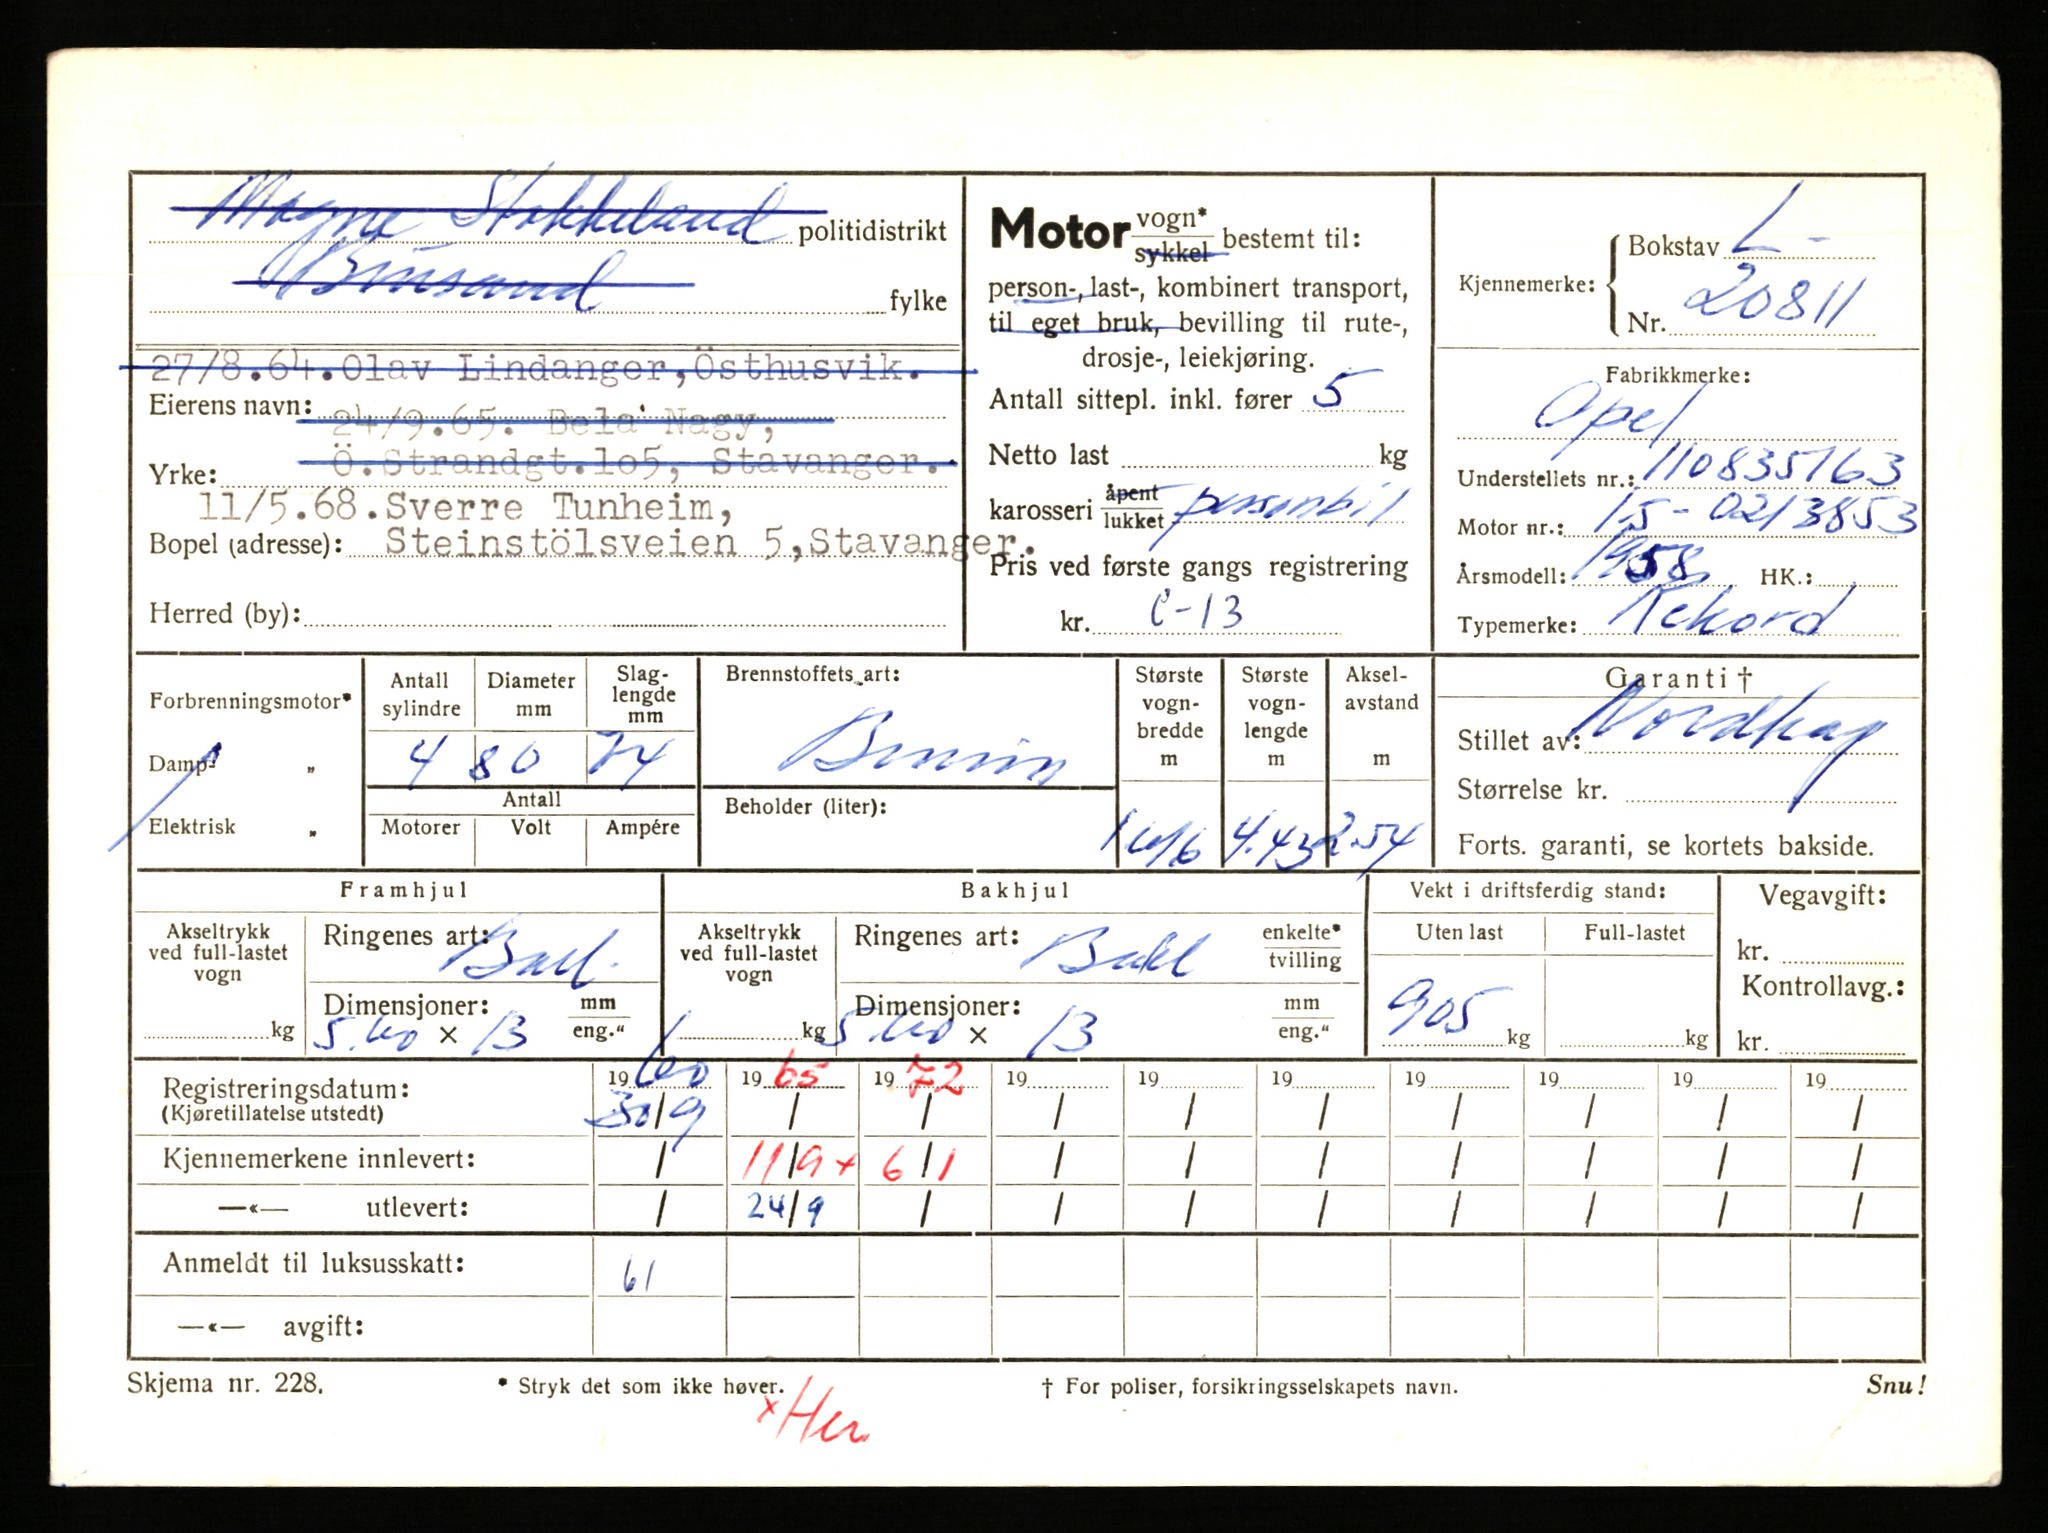 Magne Stokkeland politidistrikt
Brusand fylke
27/8.64. Olav Lindanger, Østhusvik.
Eierens navn: 24/9.65. Bela Nagy,
Yrke: Ö. Strandgt. 105, Stavanger.
11/5.68. Sverre Tunheim,
Bopel (adresse): Steinstölsveien 5, Stavanger.
Herred (by):
Motor vogn* sykkel bestemt til:
person-, last-, kombinert transport,
til eget bruk, bevilling til rute-,
drosje-, leiekjøring.
Antall sittepl. inkl. fører 5
Netto last kg
karosseri åpent lukket personbil
Pris ved første gangs registrering
kr. C-13
Kjennemerke: Bokstav L-
Nr. 20811
Fabrikkmerke:
Opel
Understellets nr.: 110835763
Motor nr.: 1,5-0213853
Årsmodell: 1958 HK.:
Typemerke: Rekord
Forbrenningsmotor*
Damp- „
Elektrisk „
Antall sylindre Diameter mm Slag-lengde mm
4 80 74
Antall
Motorer Volt Ampére
Brennstoffets art:
Bensin
Beholder (liter):
Største vogn-bredde m
1.616
Største vogn-lengde m
4.43
Aksel-avstand m
2.54
Garanti †
Stillet av: Nordkap
Størrelse kr.
Forts. garanti, se kortets bakside.
Framhjul
Akseltrykk ved full-lastet vogn kg
Ringenes art: Ball.
Dimensjoner: mm eng."
5.60 × 13
Bakhjul
Akseltrykk ved full-lastet vogn kg
Ringenes art: Ball enkelte* tvilling
Dimensjoner: mm eng."
5.60 × 13
Vekt i driftsferdig stand:
Uten last Full-lastet
905 kg kg
Vegavgift:
kr.
Kontrollavg.:
kr.
Registreringsdatum: 19 60 19 65 19 72 19 19 19 19 19 19 19
(Kjøretillatelse utstedt) 30/9 / / / / / / / / /
Kjennemerkene innlevert: / 11/9 x 6/1 / / / / / / /
—«— utlevert: / 24/9 / / / / / / / /
Anmeldt til luksusskatt: 61
—«— avgift:
Skjema nr. 228. * Stryk det som ikke høver. † For poliser, forsikringsselskapets navn. Snu!
x Her